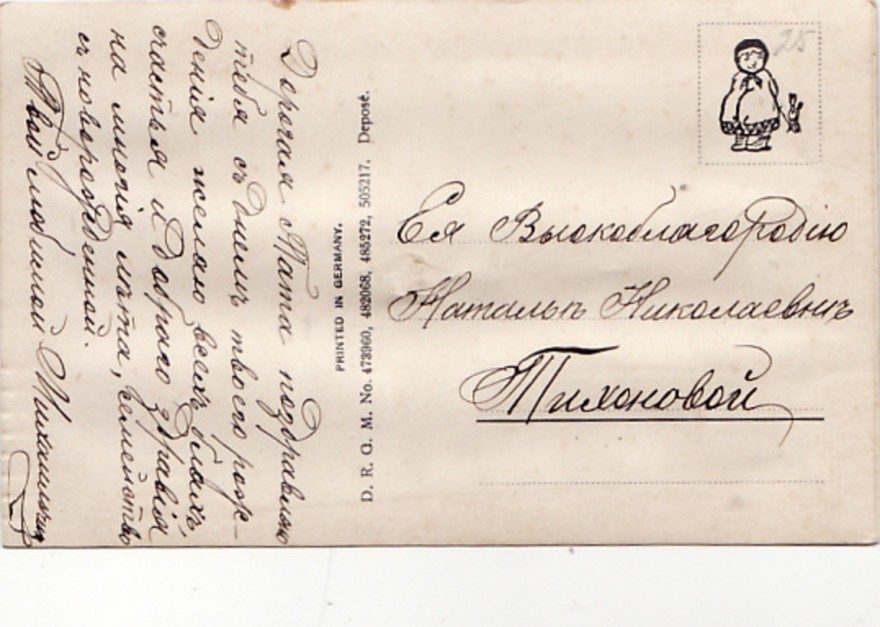 Дорогая Ната поздравляю
тебя съ днемъ твоего рож-
денія желаю всехъ благъ,
счастья и добраго здравія
на многія лѣта, семейство
съ новорожденной.
Твой любимой
PRINTED IN GERMANY.
D. R. G. M. No. 473960, 482068, 485272, 505217. Deposé.
25
Ея Высокоблагородію
Натальѣ Николаевнѣ
Тихоновой